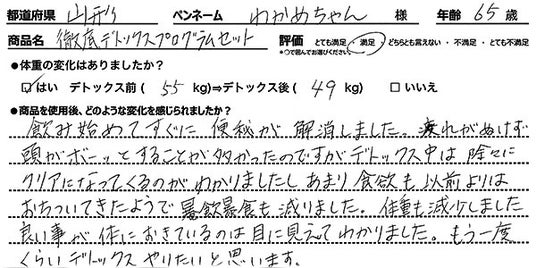 都道府県 山形 ペンネーム わかめちゃん 様 年齢 65 歳
商品名 徹底デトックスプログラムセット 評価 とても満足・満足・どちらとも言えない・不満足・とても不満足
※○で囲んでお選びください。
●体重の変化はありましたか?
☑はい デトックス前( 55 kg)⇒デトックス後( 49 kg) □いいえ
●商品を使用後、どのような変化を感じられましたか?
飲み始めてすぐに 便秘が 解消しました。疲れがぬけず
頭がボーッとすることが多かったのですがデトックス中は 除々に
クリアになってくるのがわかりましたし あまり 食欲も 以前よりは
おちついてきたようで 暴飲暴食も 減りました。体重も減少しました
良い事が 体におきているのは 目に見えてわかりました。もう一度
くらいデトックス やりたいと思います。